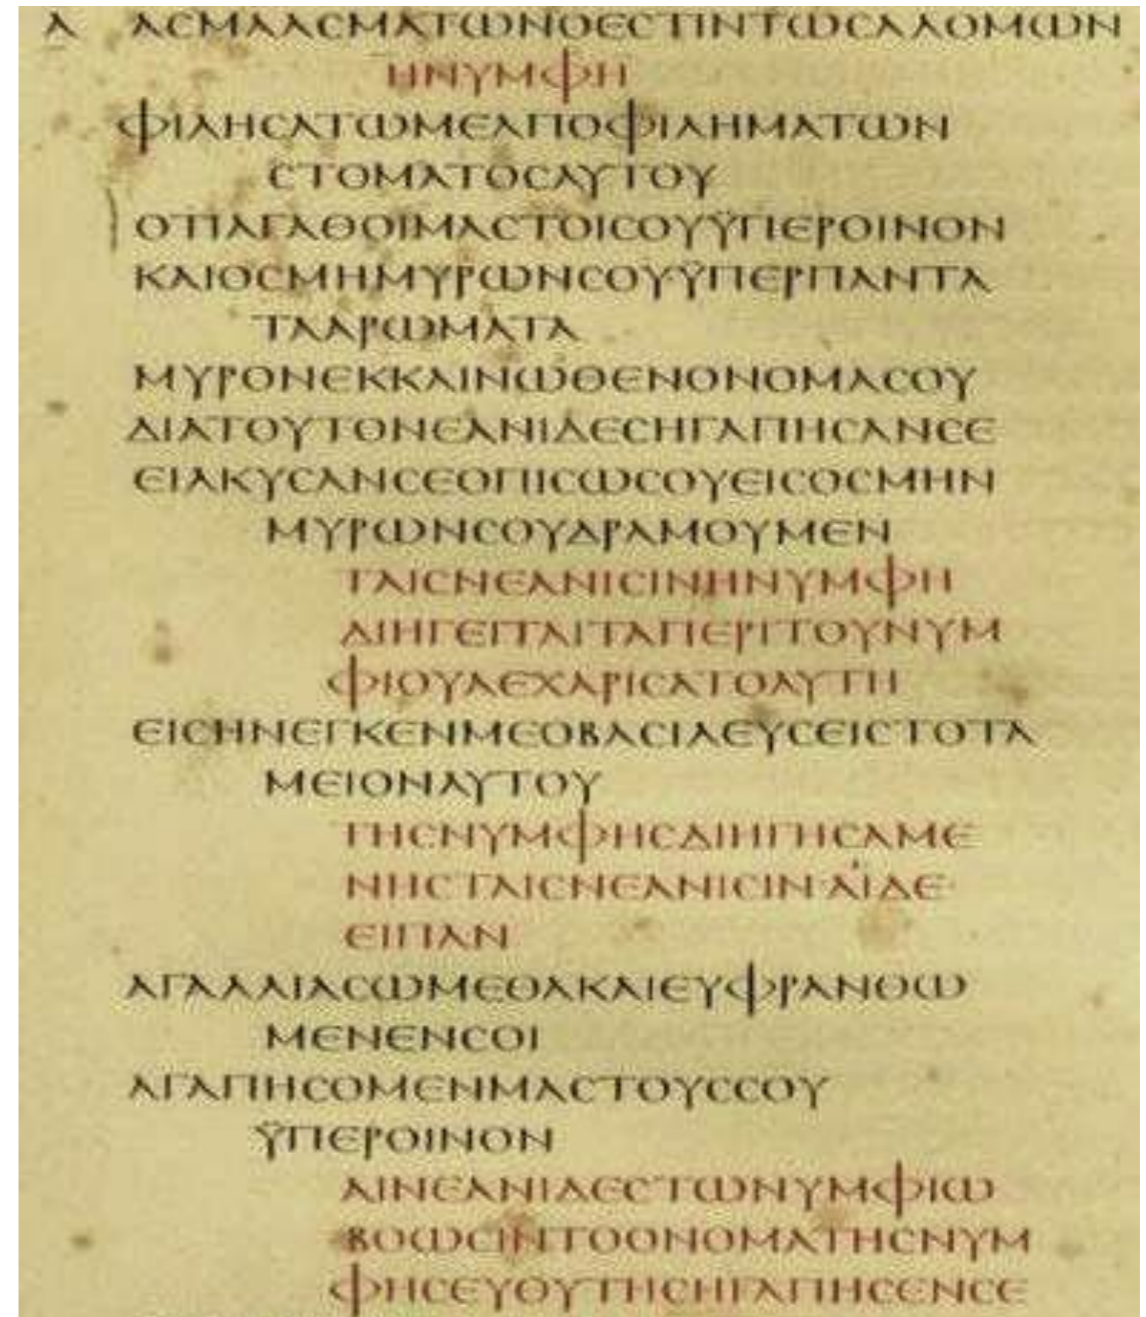 Α ΑСΜΑΑСΜΑΤωΝΟΕСΤΙΝΤωСΑΛΟΜωΝ
ΗΝΥΜΦΗ
ΦΙΛΗСΑΤωΜΕΑΠΟΦΙΛΗΜΑΤωΝ
СΤΟΜΑΤΟСΑΥΤΟΥ
ΟΤΙΑΓΑΘΟΙΜΑСΤΟΙСΟΥΫΠΕΡΟΙΝΟΝ
ΚΑΙΟСΜΗΜΥΡωΝСΟΥΫΠΕΡΠΑΝΤΑ
ΤΑΑΡωΜΑΤΑ
ΜΥΡΟΝΕΚΚΑΙΝωΘΕΝΟΝΟΜΑСΟΥ
ΔΙΑΤΟΥΤΟΝΕΑΝΙΔΕСΗΓΑΠΗСΑΝСΕ
ΕΙΛΚΥСΑΝСΕΟΠΙСωСΟΥΕΙСΟСΜΗΝ
ΜΥΡωΝСΟΥΔΡΑΜΟΥΜΕΝ
ΤΑΙСΝΕΑΝΙСΙΝΗΝΥΜΦΗ
ΔΙΗΓΕΙΤΑΙΤΑΠΕΡΙΤΟΥΝΥΜ
ΦΙΟΥΑΕΧΑΡΙСΑΤΟΑΥΤΗ
ΕΙСΗΝΕΓΚΕΝΜΕΟΒΑСΙΛΕΥСΕΙСΤΟΤΑ
ΜΕΙΟΝΑΥΤΟΥ
ΤΗСΝΥΜΦΗСΔΙΗΓΗСΑΜΕ
ΝΗСΤΑΙСΝΕΑΝΙСΙΝ·ΑΙΔΕ·
ΕΙΠΑΝ
ΑΓΑΛΛΙΑСωΜΕΘΑΚΑΙΕΥΦΡΑΝΘω
ΜΕΝΕΝСΟΙ
ΑΓΑΠΗСΟΜΕΝΜΑСΤΟΥССΟΥ
ΫΠΕΡΟΙΝΟΝ
ΑΙΝΕΑΝΙΔΕСΤωΝΥΜΦΙω
ΒΟωСΙΝΤΟΟΝΟΜΑΤΗСΝΥΜ
ΦΗСΕΥΘΥΤΗСΗΓΑΠΗСΕΝСΕ